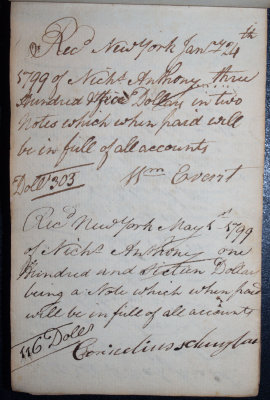 Rec.d New York Jan.y 24th
1799 of Nich.s Anthony three
Hundred & Dollars in two
Notes which when paid will
be in full of all accounts
Doll.s 303 Wm Everit
Rec.d New York May 1st 1799
of Nich.s Anthony one
Hundred and Sixteen Dollars
being a Note which when paid
will be in full of all accounts
116 Doll.s
Cornelius Schuyler